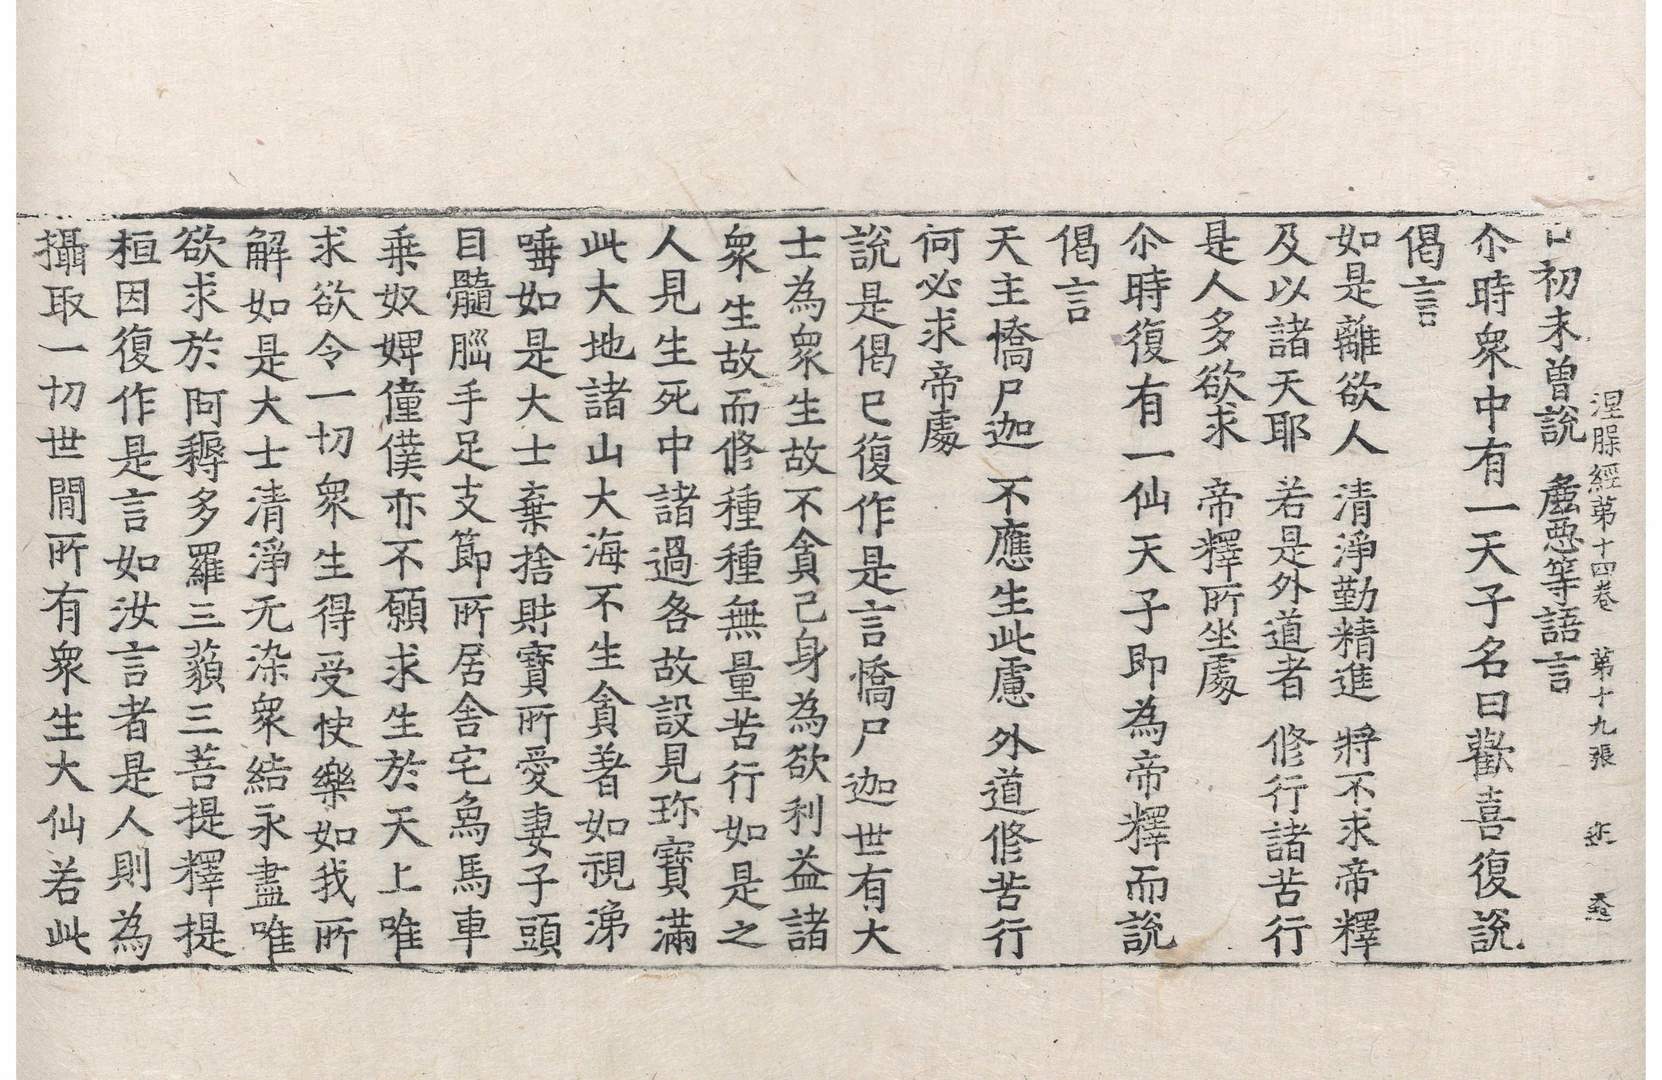 口初未曾說 麁惡等語言
涅槃經第十四卷 第十九張
尒時衆中有一天子名曰歡喜復說
偈言
如是離欲人 清淨勤精進 將不求帝釋
及以諸天耶 若是外道者 修行諸苦行
是人多欲求 帝釋所坐處
尒時復有一仙天子即為帝釋而說
偈言
天主憍尸迦 不應生此慮 外道修苦行
何必求帝處
說是偈已復作是言憍尸迦世有大
士為衆生故不貪己身為欲利益諸
衆生故而修種種無量苦行如是之
人見生死中諸過各故設見珎寶滿
此大地諸山大海不生貪著如視涕
唾如是大士棄捨財寶所愛妻子頭
目髓腦手足支節所居舍宅象馬車
乗奴婢僮僕亦不願求生於天上唯
求欲令一切衆生得受快樂如我所
解如是大士清淨无染衆結永盡唯
欲求於阿耨多羅三藐三菩提釋提
桓因復作是言如汝言者是人則為
攝取一切世間所有衆生大仙若此